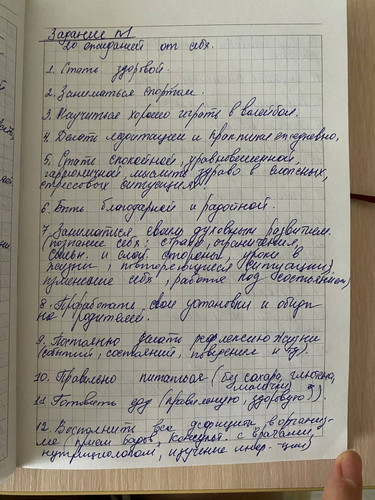 Задание №1
20 ожиданий от себя.
1. Стать здоровой.
2. Заниматься спортом.
3. Научиться хорошо играть в волейбол.
4. Делать медитации и практики ежедневно,
5. Стать спокойной, уравновешенной,
гармоничной, мыслить здраво в сложных,
стрессовых ситуациях.
6. Быть благодарной и радостной.
7. Заниматься своим духовным развитием.
(познание себя: страхи, ограничения,
сильн. и слаб. стороны, уроки в
жизни, повторяющиеся ситуации)
изменение себя, работа над состоянием)
8. Проработать свои установки и обиды
на родителей.
9. Постоянно делать рефлексию жизни
(событий, состояний, поведения и др).
10. Правильно питаться (без сахара, глютена,
молочки)
11. Готовить еду (правильную, здоровую).
12. Восполнить все дефициты в организ-
ме (прием бадов, консульт. с врачами,
нутрициологом, изучение инфор-ции)